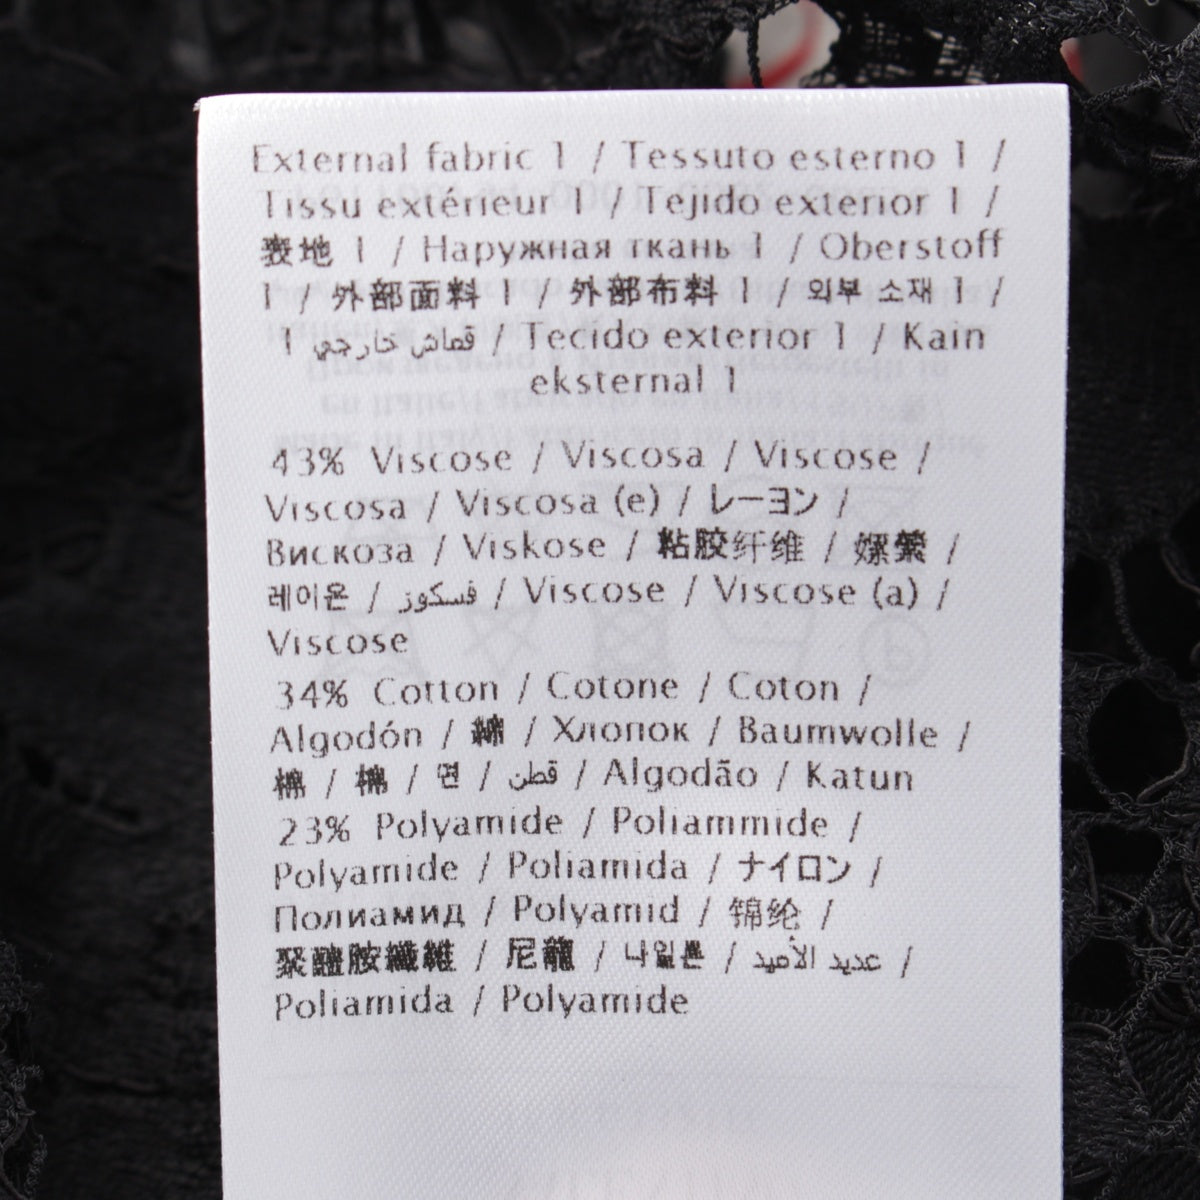 External fabric 1 / Tessuto esterno 1 /
Tissu extérieur 1 / Tejido exterior 1 /
表地 1 / Наружная ткань 1 / Oberstoff
1 / 外部面料 1 / 外部布料 1 / 외부 소재 1 /
1 قماش خارجي / Tecido exterior 1 / Kain
eksternal 1
43% Viscose / Viscosa / Viscose /
Viscosa / Viscosa (e) / レーヨン /
Вискоза / Viskose / 粘胶纤维 / 嫘縈 /
레이온 / فسكوز / Viscose / Viscose (a) /
Viscose
34% Cotton / Cotone / Coton /
Algodón / 綿 / Хлопок / Baumwolle /
棉 / 棉 / 면 / قطن / Algodão / Katun
23% Polyamide / Poliammide /
Polyamide / Poliamida / ナイロン /
Полиамид / Polyamid / 锦纶 /
聚醯胺纖維 / 尼龍 / 나일론 / عديد الأميد /
Poliamida / Polyamide